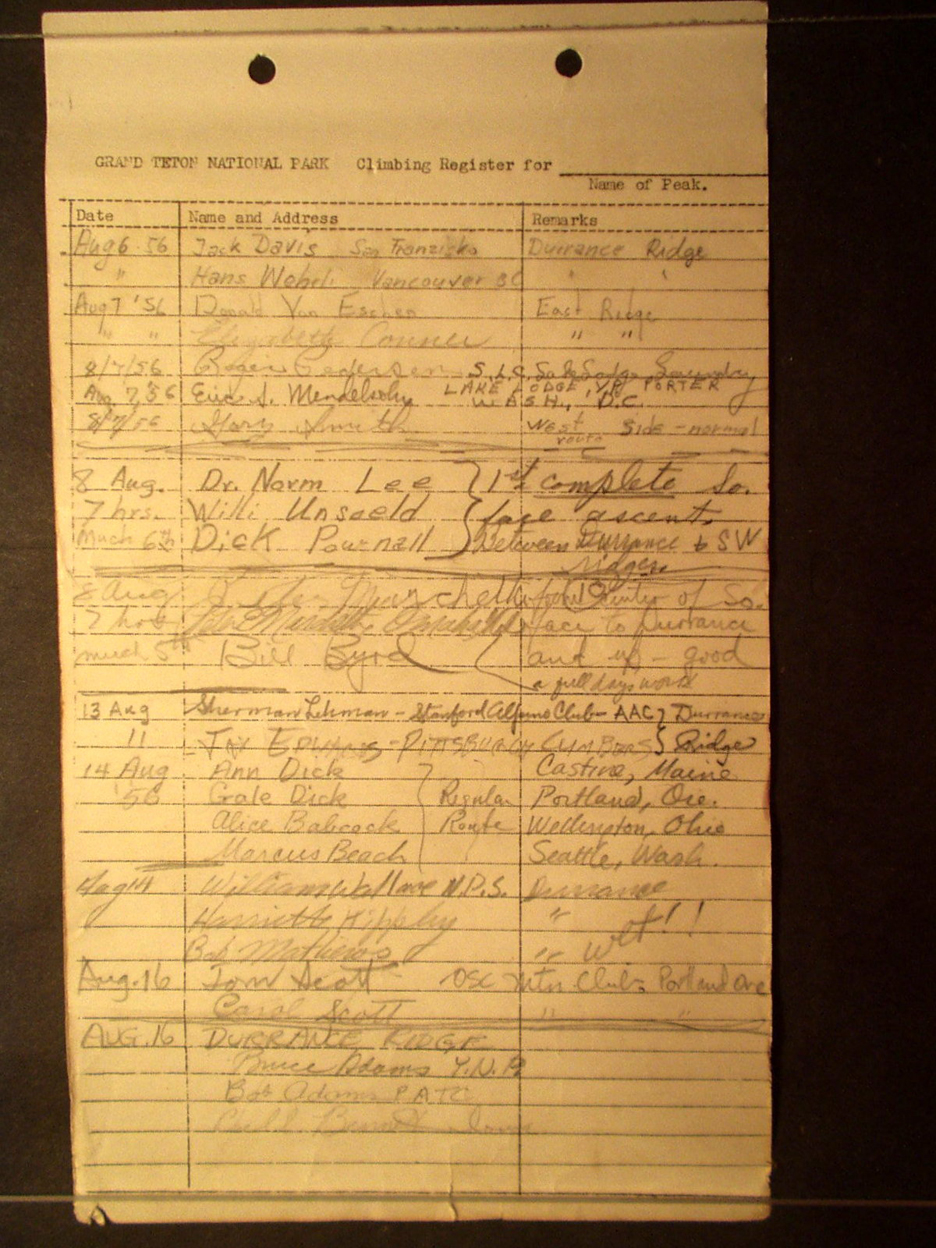 GRAND TETON NATIONAL PARK Climbing Register for
Name of Peak.
Date Name and Address Remarks
Aug 6 56 Jack Davis San Franzisko Durrance Ridge
" Hans Wehrli Vancouver BC " "
Aug 7 '56 Donald Von Eschen East Ridge
" " Elizabeth Conner " "
8/7/56 Roger Pedersen S.L.C. Laundry
Aug 7, 56 Eric S. Mendelsohn LAKE LODGE, Y.P. PORTER
WASH., D.C.
8/7/56 Gary Smith West Side - normal
route
8 Aug. Dr. Norm Lee } 1st complete So.
7 hrs. Willi Unsoeld face ascent.
Much 6th Dick Pownall Between Durrance & SW
ridges
8 Aug center of So.
7 hrs face to Durrance
much 5th Bill Byrd and up - good
a full days work
13 Aug Sherman Lehman - Stanford Alpine Club - AAC } Durrance
11 PITTSBURGH Ridge
14 Aug Ann Dick Castine, Maine
'56 Gale Dick Regular Portland, Ore.
Alice Babcock Route Wellington, Ohio
Marcus Beach Seattle, Wash.
Aug 14 William Wallace N.P.S. Durrance
Harriette "
Bob Mathews " wet!!
Aug. 16 Tom Scott Mtn Club Portland Ore
Carol Scott " "
AUG. 16 DURRANCE RIDGE
Bruce Adams Y.N.P.
Bob Adams PATC